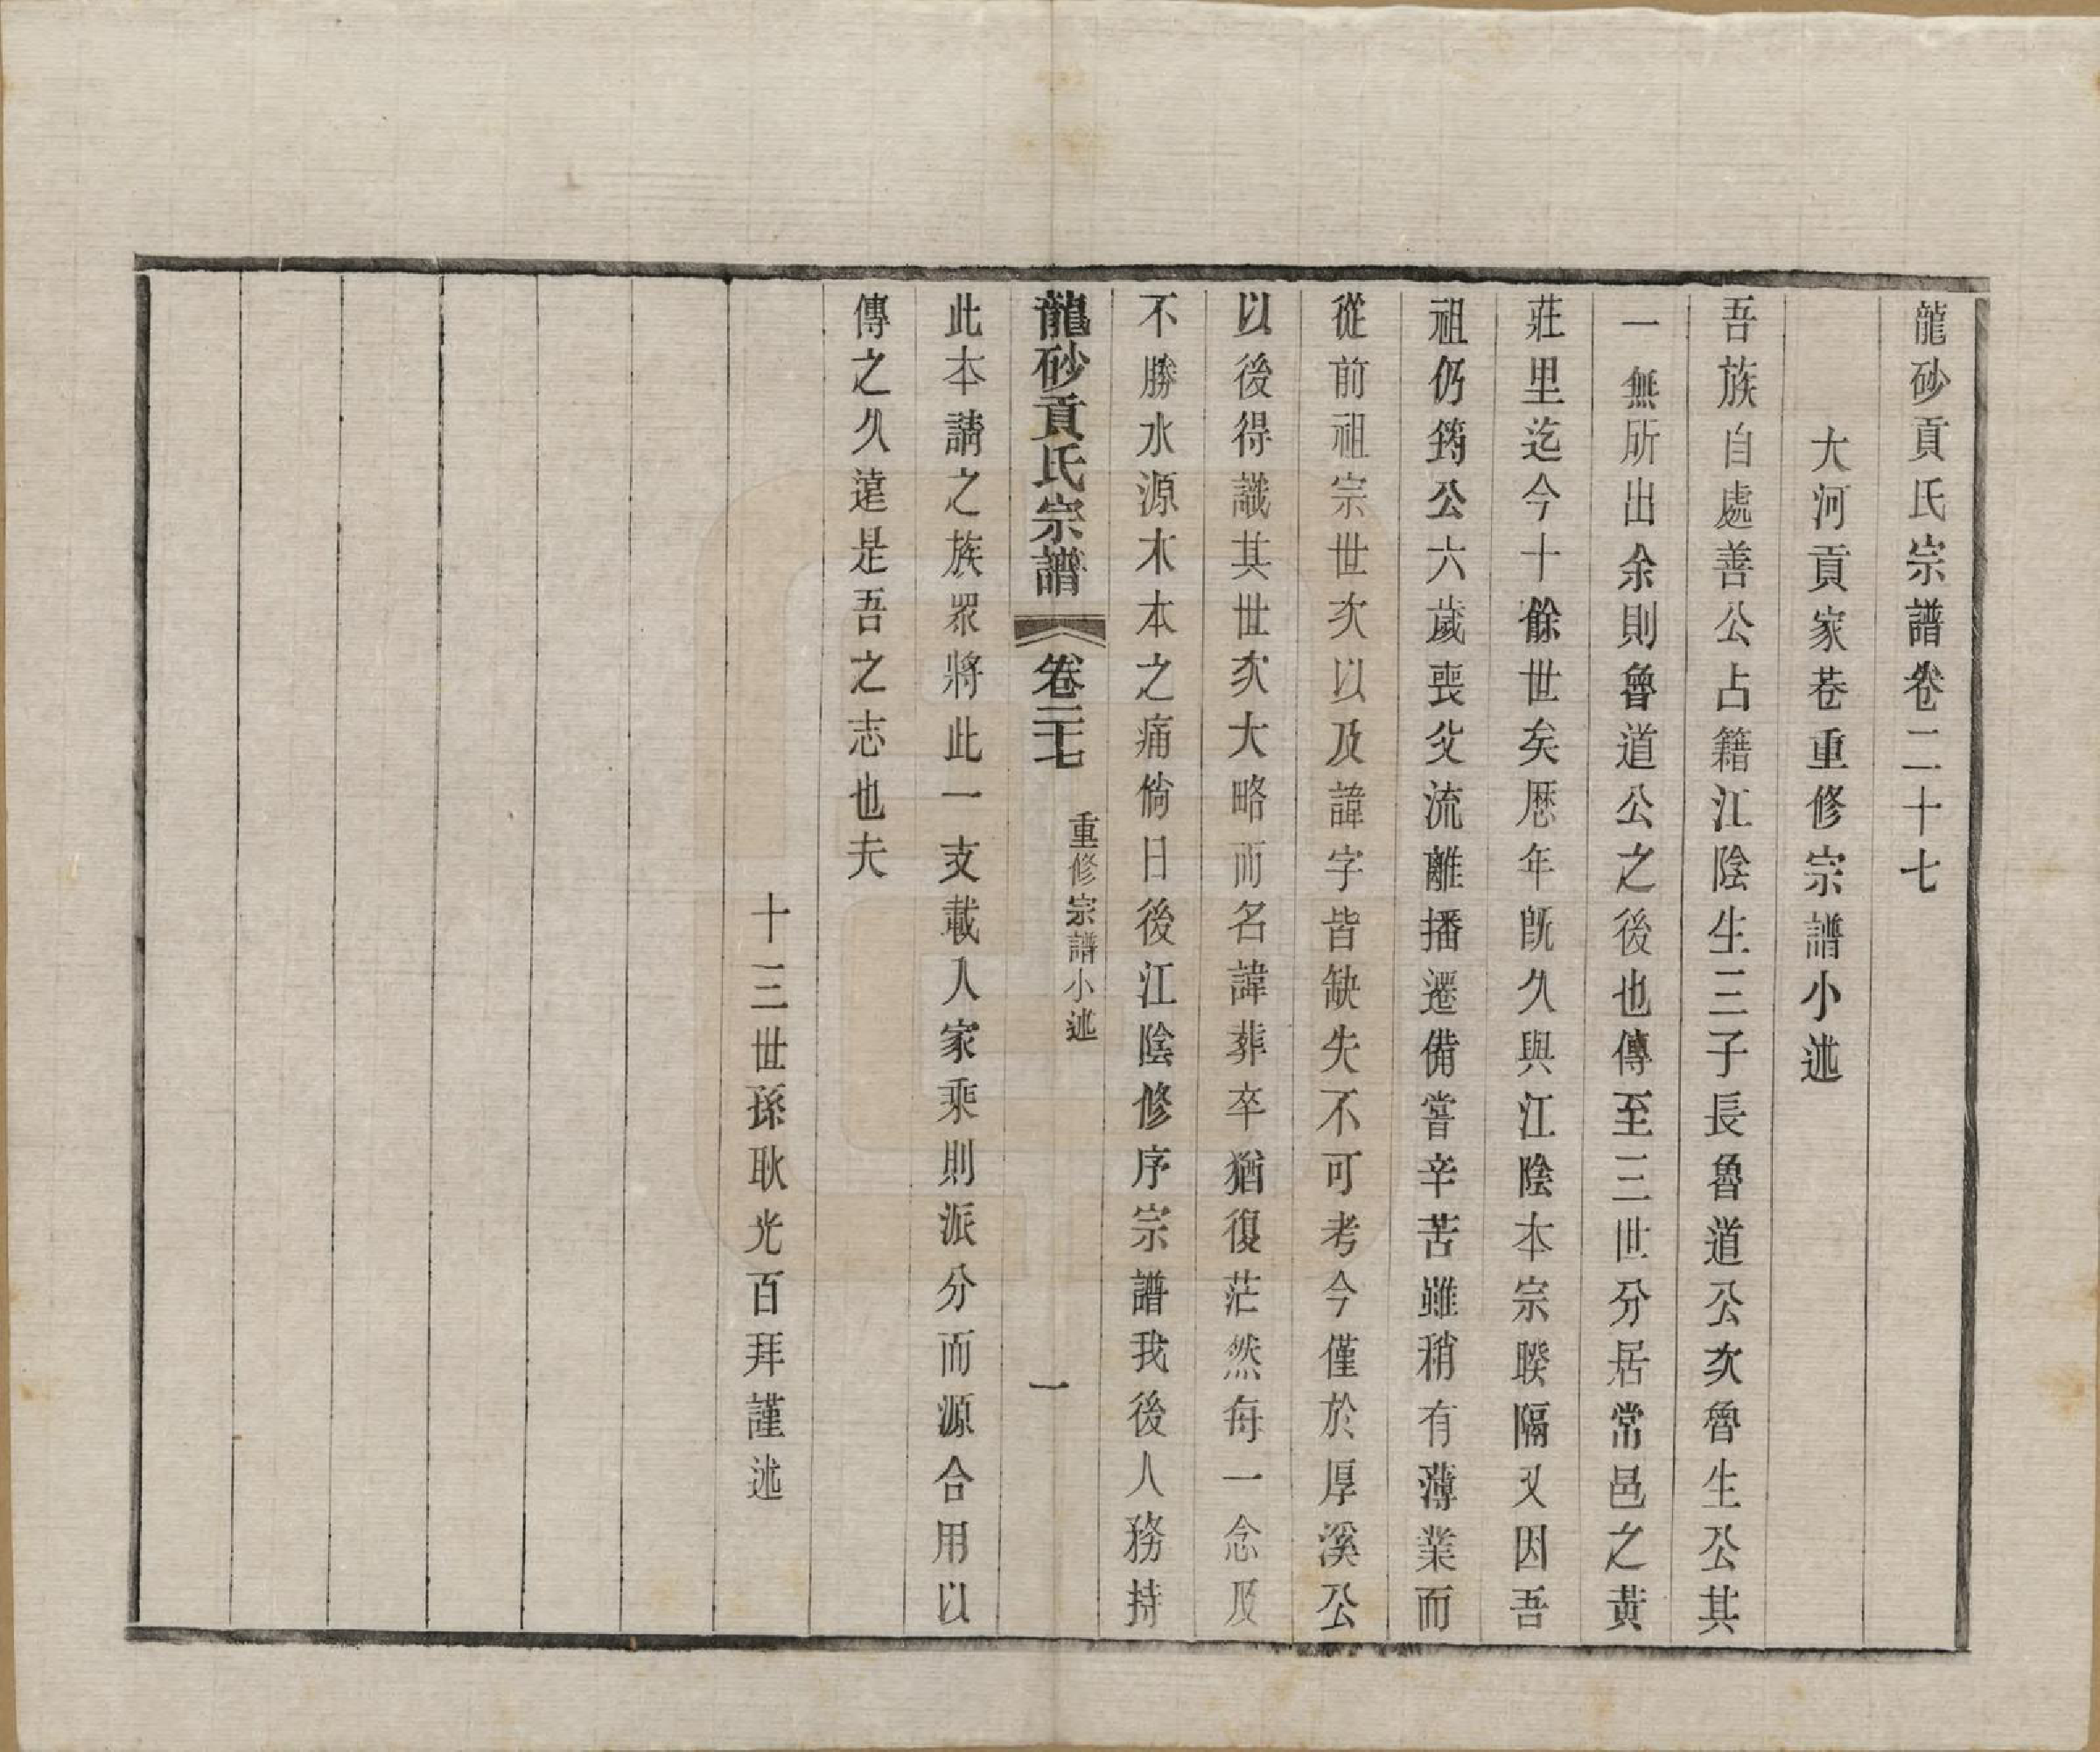 龍砂貢氏宗譜卷二十七
大河貢家巷重修宗譜小述
吾族自處善公占籍江陰生三子長魯道公次魯生公其
一無所出余則魯道公之後也傳至三世分居常邑之黃
莊里迄今十餘世矣厯年旣久與江陰本宗睽隔又因吾
祖仍筠公六歲喪父流離播遷備嘗辛苦雖稍有薄業而
從前祖宗世次以及諱字皆缺失不可考今僅於厚溪公
以後得識其世次大略而名諱葬卒猶復茫然每一念及
不勝水源木本之痛倘日後江陰修序宗譜我後人務持
龍砂貢氏宗譜 卷二十七 重修宗譜小述 一
此本請之族眾將此一支載入家乘則派分而源合用以
傳之久遠是吾之志也夫
十三世孫耿光百拜謹述